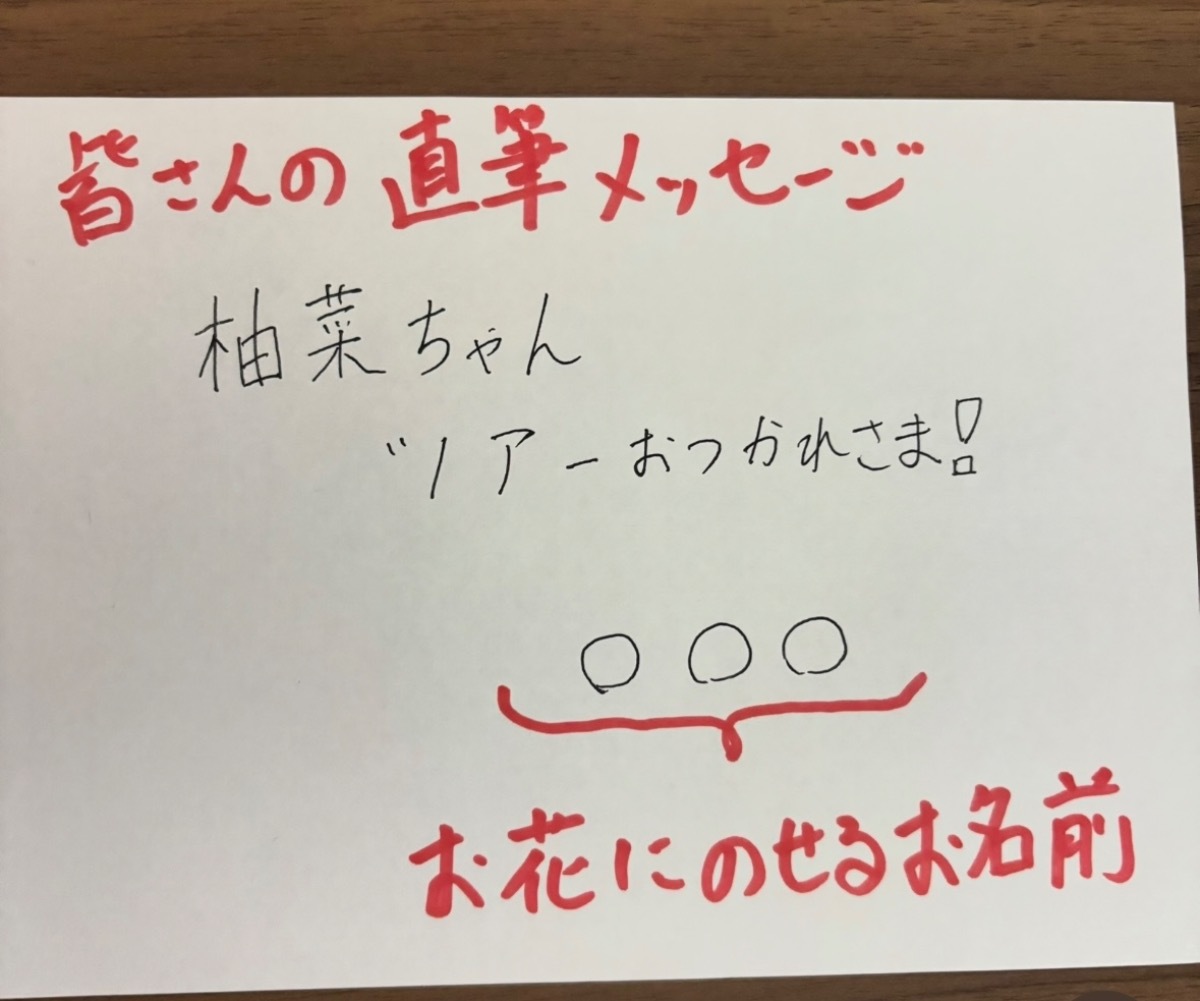 皆さんの直筆メッセージ
柚菜ちゃん
ツアーおつかれさま!
○ ○ ○
お花にのせるお名前